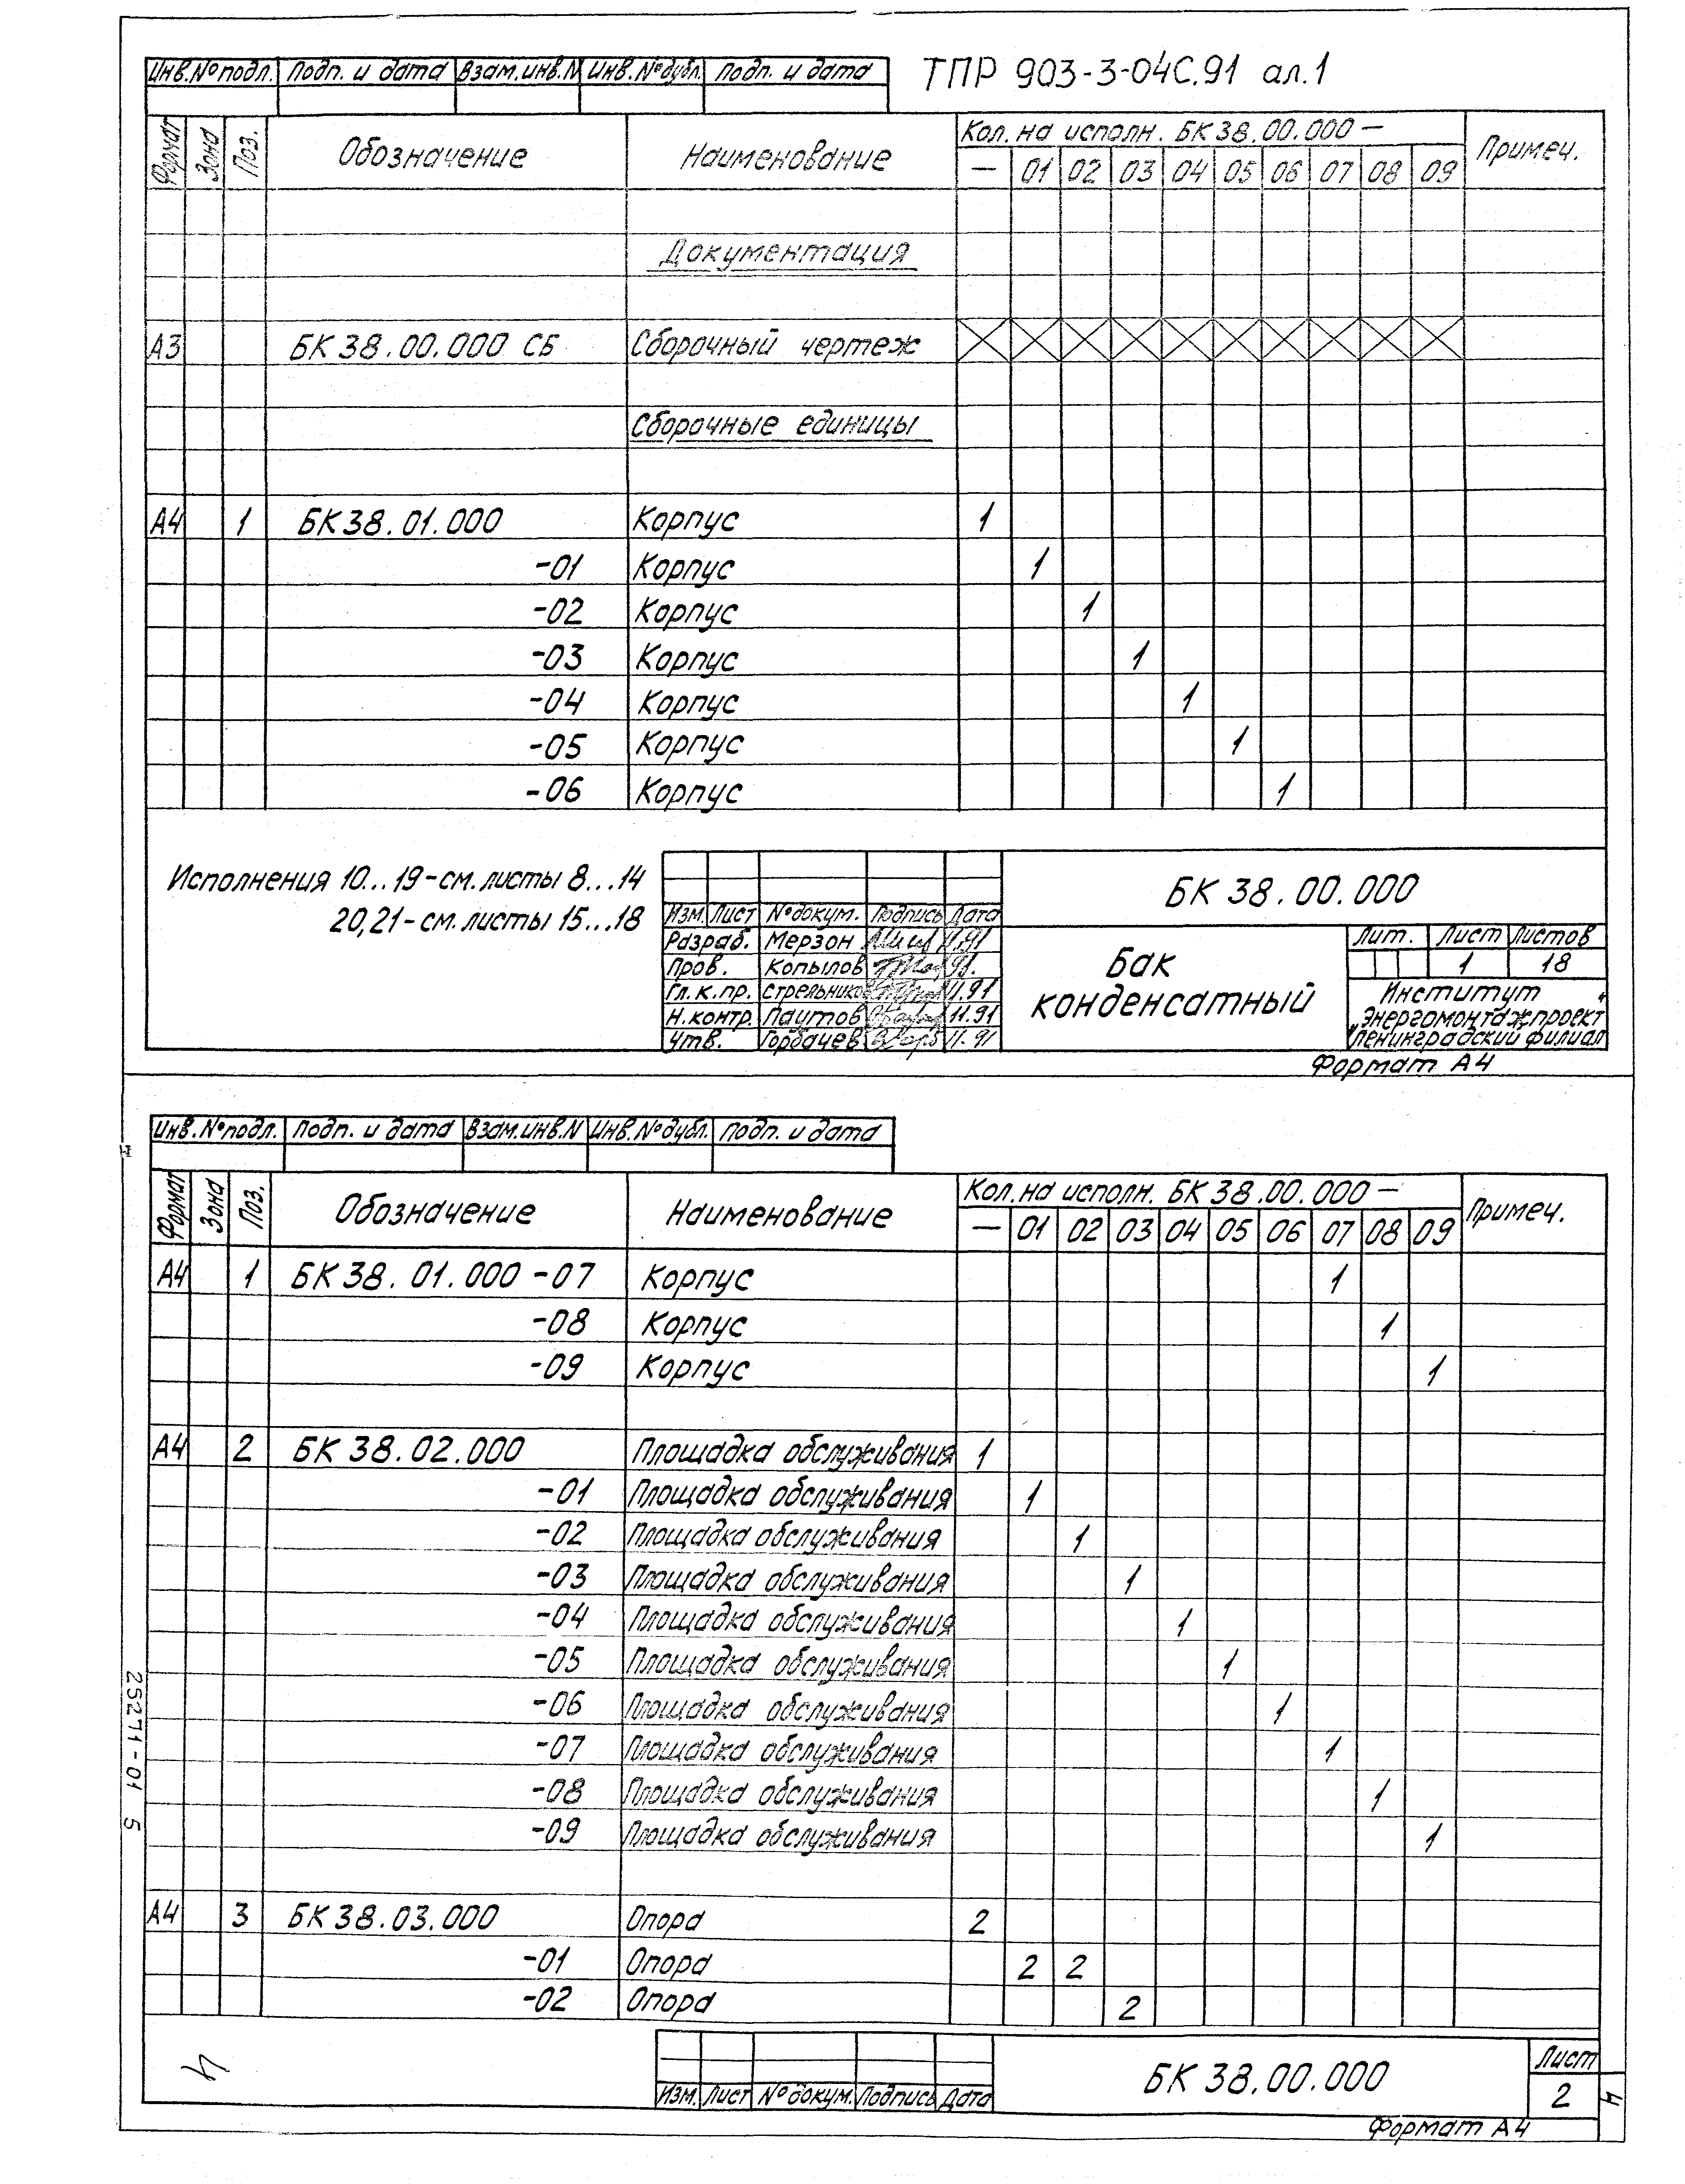 ТПР 903-3-04С.91 ал.1
Инв.№подл. Подп. и дата Взам.инв.N Инв.№дубл. Подп. и дата
Формат Зона Поз. Обозначение Наименование Кол. на исполн. БК 38.00.000 — Примеч.
— 01 02 03 04 05 06 07 08 09
Документация
А3 БК 38.00.000 СБ Сборочный чертеж
Сборочные единицы
А4 1 БК 38.01.000 Корпус 1
-01 Корпус 1
-02 Корпус 1
-03 Корпус 1
-04 Корпус 1
-05 Корпус 1
-06 Корпус 1
Исполнения 10...19-см. листы 8...14
20,21-см. листы 15...18
БК 38.00.000
Изм. Лист №докум. Подпись Дата
Разраб. Мерзон 11.91
Пров. Копылов 91.
Гл.к.пр. Стрельников 11.91
Н.контр. Паутов 11.91
Утв. Горбачев 11.91
Бак
конденсатный
Лит. Лист Листов
1 18
Институт
"Энергомонтажпроект"
Ленинградский филиал
Формат А4
Инв.№подл. Подп. и дата Взам.инв.N Инв.№дубл. Подп. и дата
Формат Зона Поз. Обозначение Наименование Кол. на исполн. БК 38.00.000 — Примеч.
— 01 02 03 04 05 06 07 08 09
А4 1 БК 38.01.000 -07 Корпус 1
-08 Корпус 1
-09 Корпус 1
А4 2 БК 38.02.000 Площадка обслуживания 1
-01 Площадка обслуживания 1
-02 Площадка обслуживания 1
-03 Площадка обслуживания 1
-04 Площадка обслуживания 1
-05 Площадка обслуживания 1
-06 Площадка обслуживания 1
-07 Площадка обслуживания 1
-08 Площадка обслуживания 1
-09 Площадка обслуживания 1
А4 3 БК 38.03.000 Опора 2
-01 Опора 2 2
-02 Опора 2
Изм. Лист №докум. Подпись Дата
БК 38.00.000
Лист
2
Формат А4
4
25271-01 5